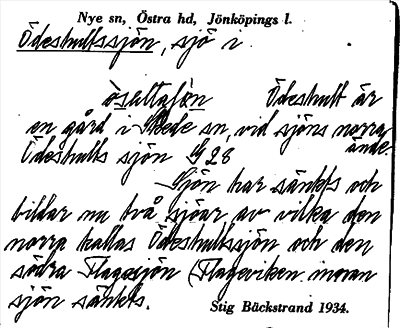 Nye sn, Östra hd, Jönköpings l.
Ödeshultssjön, sjö i
ösaltasjön Ödeshult är
en gård i Skede sn, vid sjöns norra
ände.
Ödeshults sjön G 28
Sjön har sänkts och
bildar nu två sjöar av vilka den
norra kallas Ödeshultssjön och den
södra Flagesjön (Flageviken innan
sjön sänkts.
Stig Bäckstrand 1934.